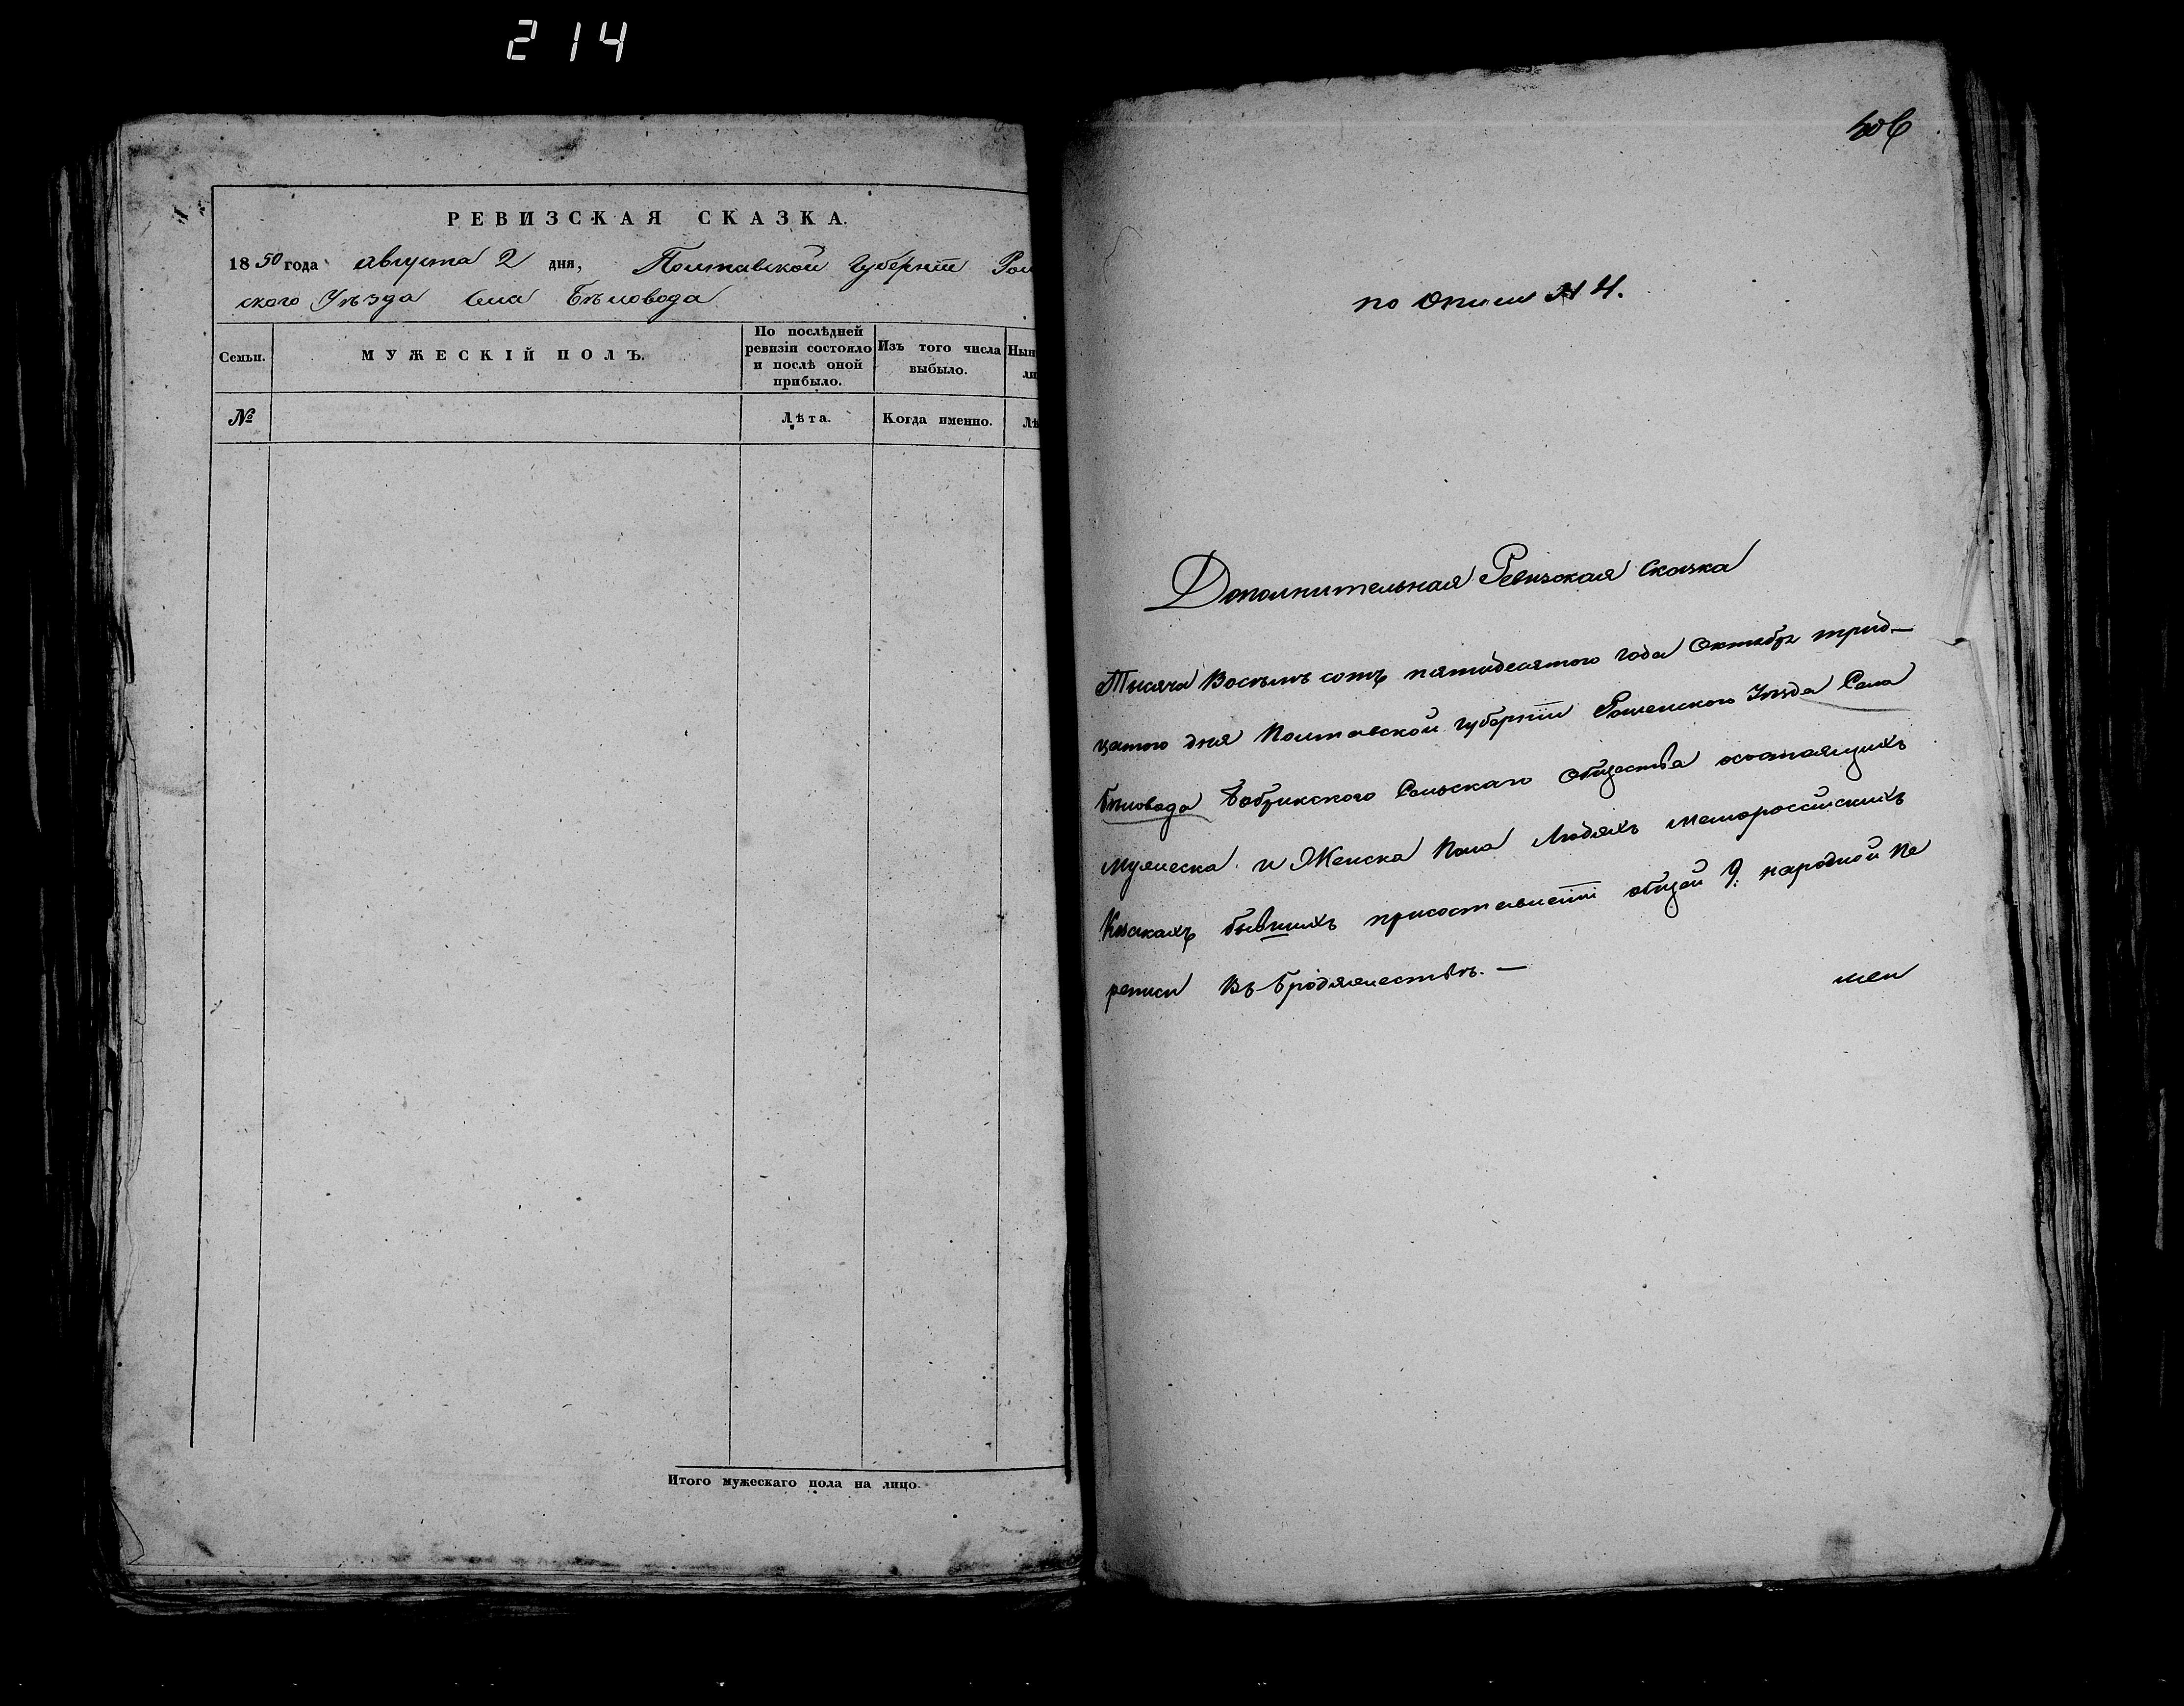 214
РЕВИЗСКАЯ СКАЗКА.
1850 года августа 2 дня, Полтавской Губернiи Ром
ского Уѣзда Села Бѣловода
Семьи.
МУЖЕСКIЙ ПОЛЪ.
По послѣдней ревизiи состояло и послѣ оной прибыло.
Изъ того числа выбыло.
Нын
ли
№
Лѣта.
Когда именно.
Лѣ
Итого мужескаго пола на лицо.
по Описи № 4.
Дополнительная Ревизская Сказка
Тысяча Восемь сотъ пятидесятого года Октября трид-
цатого дня Полтавской губернiи Роменского Уѣзда Села
Бѣловода Бобрикского Сельскаго Общества осостаящихъ
Мужеска и Женска Пола Людяхъ малороссiйскихъ
Козакахъ бывшихъ присоставленiи общей 9: народной пе
реписи Въ бродяжествѣ. —